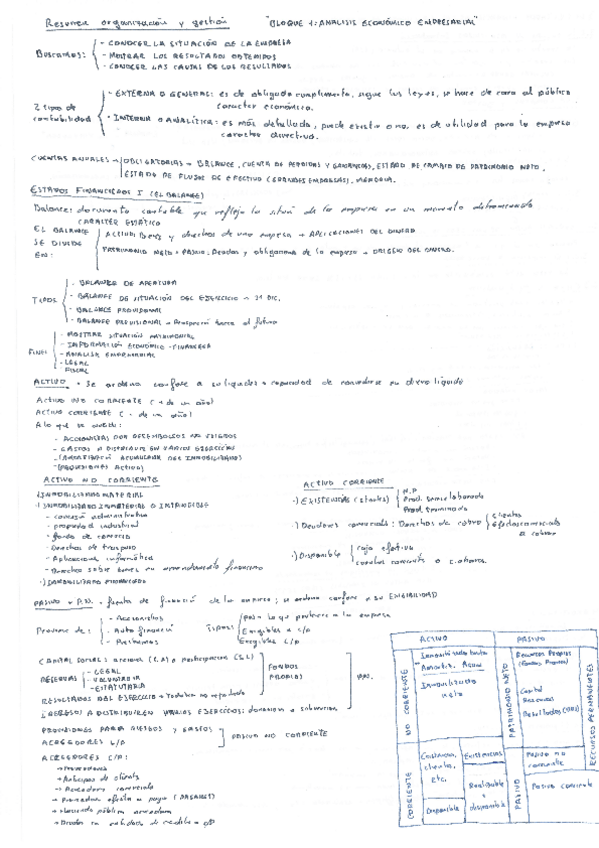 Resumen organización y gestión "BLOQUE 1: ANALISIS ECONÓMICO EMPRESARIAL"
Buscamos:
- CONOCER LA SITUACIÓN DE LA EMPRESA
- MOSTRAR LOS RESULTADOS OBTENIDOS
- CONOCER LAS CAUSAS DE SUS RESULTADOS
2 tipos de contabilidad
- EXTERNA O GENERAL: es de obligado cumplimiento, sigue las leyes, se hace de cara al público
caracter económico.
- INTERNA O ANALÍTICA: es más detallada, puede existir o no, es de utilidad para la empresa
caracter directivo.
CUENTAS ANUALES → OBLIGATORIAS → BALANCE, CUENTA DE PERDIDAS Y GANANCIAS, ESTADO DE CAMBIO DE PATRIMONIO NETO,
ESTADO DE FLUJOS DE EFECTIVO (GRANDES EMPRESAS), MEMORIA.
ESTADOS FINANCIEROS I (EL BALANCE)
Balance: documento contable que refleja la situación de la empresa en un momento determinado
CARACTER ESTÁTICO
EL BALANCE SE DIVIDE EN:
ACTIVO: Bienes y derechos de una empresa → APLICACIONES DEL DINERO
PATRIMONIO NETO + PASIVO: Deudas y obligaciones de la empresa → ORIGEN DEL DINERO.
TIPOS
- BALANCE DE APERTURA
- BALANCE DE SITUACIÓN DEL EJERCICIO → 31 DIC.
- BALANCE PROVISIONAL
- BALANCE PREVISIONAL → hacia el futuro
FINES
- MOSTRAR SITUACIÓN PATRIMONIAL
- INFORMACIÓN ECONÓMICO-FINANCIERA
- ANALISIS EMPRESARIAL
- LEGAL
- FISCAL
ACTIVO • Se ordena conforme a su liquidez → capacidad de convertirse en dinero líquido
ACTIVO NO CORRIENTE (+ de un año)
ACTIVO CORRIENTE (- de un año)
A lo que se añade:
- ACCIONISTAS POR DESEMBOLSOS NO EXIGIDOS
- GASTOS A DISTRIBUIR EN VARIOS EJERCICIOS
- (AMORTIZACIÓN ACUMULADA DEL INMOVILIZADO)
- (PROVISIONES ACTIVO)
ACTIVO NO CORRIENTE
·) INMOVILIZADO MATERIAL
·) INMOVILIZADO INMATERIAL O INTANGIBLE
- concesión administrativa
- propiedad industrial
- fondo de comercio
- Derechos de traspaso
- Aplicaciones informáticas
- Derechos sobre bienes en arrendamiento financiero
·) INMOVILIZADO FINANCIERO
ACTIVO CORRIENTE
·) EXISTENCIAS (stocks)
M.P
Prod. semielaborado
Prod. terminado
·) Deudores comerciales: Derechos de cobro
clientes
Efectos comerciales a cobrar
·) Disponible
caja efectivo
cuentas corrientes o c. ahorros.
PASIVO + P.N. - fuente de financiación de la empresa; se ordena conforme a su EXIGIBILIDAD
Proviene de:
- Accionistas
- Autofinanciación
- Préstamos
Tipos:
Exigibles a c/p
Exigibles L/P
CAPITAL SOCIAL: acciones (S.A) o participaciones (S.L)
RESERVAS
- LEGAL
- VOLUNTARIA
- ESTATUTARIA
RESULTADOS DEL EJERCICIO → Todavía no repartido
FONDOS PROPIOS
INGRESOS A DISTRIBUIR EN VARIOS EJERCICIOS: donaciones o subvenciones
PROVISIONES PARA RIESGOS Y GASTOS
ACREEDORES L/P
PASIVO NO CORRIENTE
ACREEDORES C/P:
→ Proveedores
→ Anticipos de clientes
→ Acreedores comerciales
→ Proveedores efectos a pagar
→ Hacienda pública acreedora
→ Deudas en entidades de crédito c/P
ACTIVO PASIVO
NO CORRIENTE
Inmovilizado bruto
- Amortiz. Acum
Inmovilizado neto
PATRIMONIO NETO
Recursos Propios
(Fondos Propios)
Capital
Reservas
Resultados
RECURSOS PERMANENTES
CORRIENTE
Existencias, clientes, Etc.
Disponible
Existencias
Realizable + disponible
PASIVO
Pasivo no corriente
Pasivo corriente